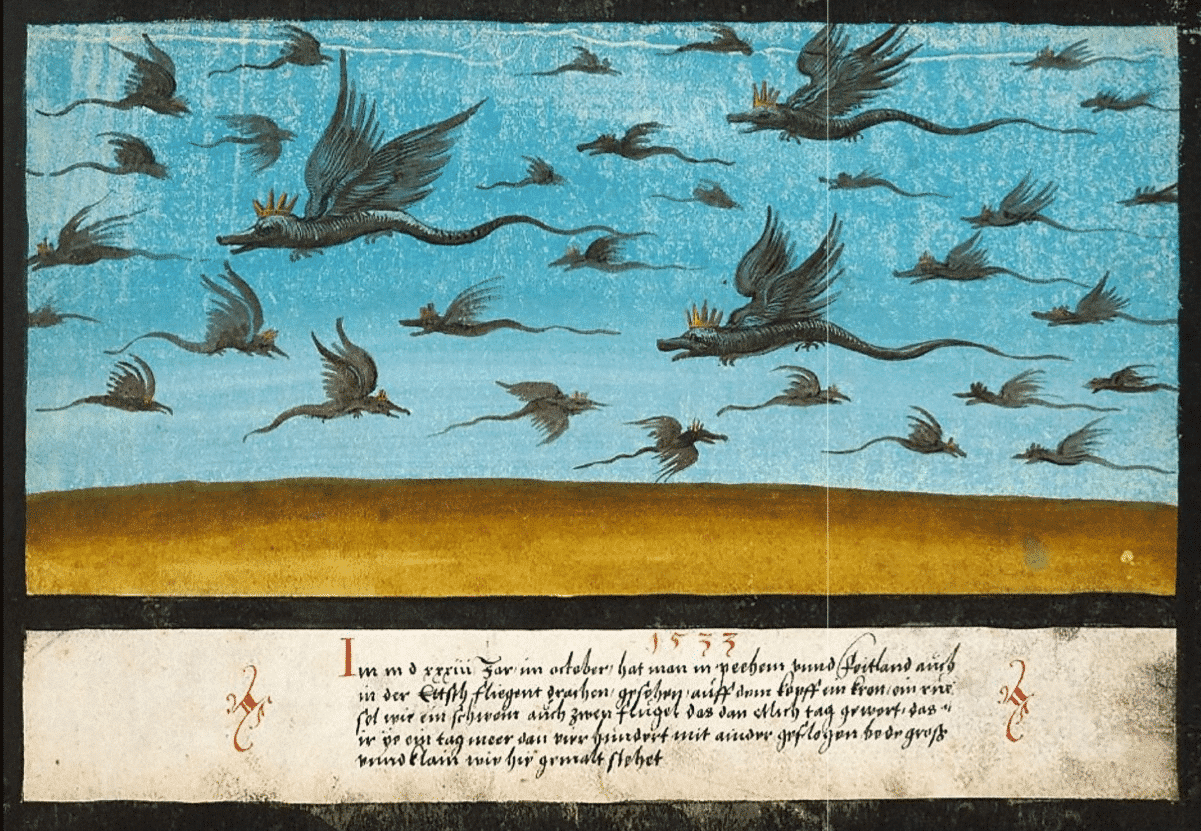 1533
Im m d xxxiii Jar, im october, hat man in peehem vnnd Voitland auch
in der Ettsch fliegent drachen, gesehen, auff dem kopff ein kron, ein rüe
sel wie ein schwein auch zwen flügel das dan etlich tag gewert, das
ir ye ein tag meer dan vier hundert mit ainder geflogen bede gross
vnnd klain wie hie gemalt stehet